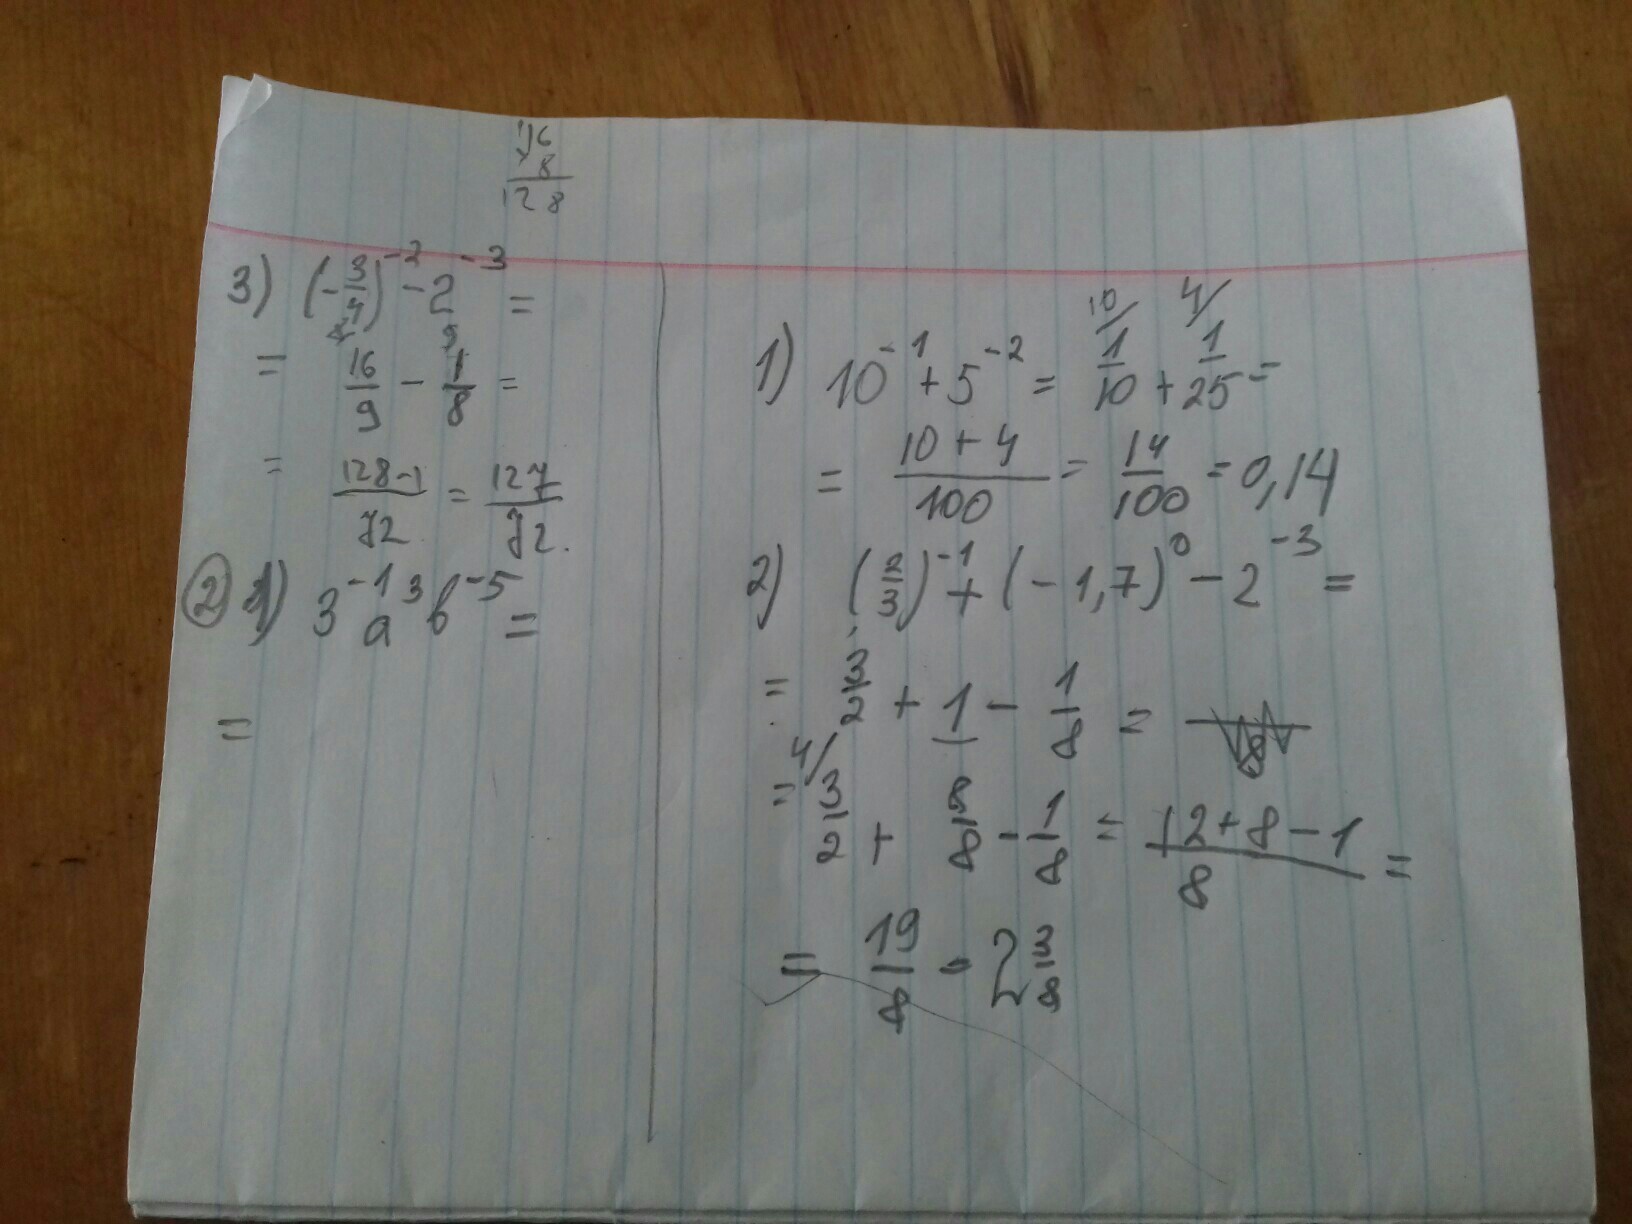 16
8
128
3) (-3/4)^-2 - 2^-3 =
= 16/9 - 1/8 =
= 128-1/72 = 127/72.
② 1) 3^-1 a^3 b^-5 =
=
1) 10^-1 + 5^-2 = 10/ 1/10 + 4/ 1/25 =
= 10+4/100 = 14/100 = 0,14
2) (2/3)^-1 + (-1,7)^0 - 2^-3 =
= 3/2 + 1 - 1/8 =
= 4/ 3/2 + 8/8 - 1/8 = 12+8-1/8 =
= 19/8 = 2 3/8